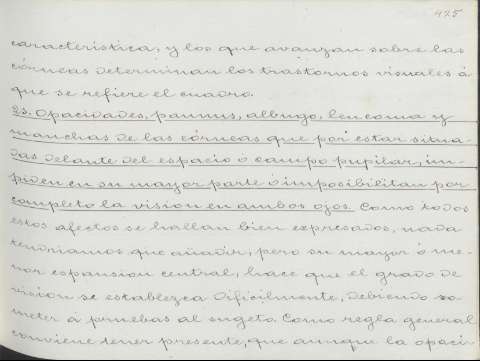 475
característica, y los que avanzan sobre las
córneas determinan los trastornos visuales á
que se refiere el cuadro.
23. Opacidades, pannus, albugo, leucoma y
manchas de las córneas que por estar situa-
das delante del espacio ó campo pupilar, im-
piden en su mayor parte ó imposibilitan por
completo la vision en ambos ojos. Como todos
estos afectos se hallan bien expresados, nada
tendriamos que añadir, pero su mayor ó me-
nor espansion central, hace que el grado de
vision se establezca dificilmente, debiendo so-
meter á pruebas al sugeto. Como regla general
conviene tener presente, que aunque la opaci-